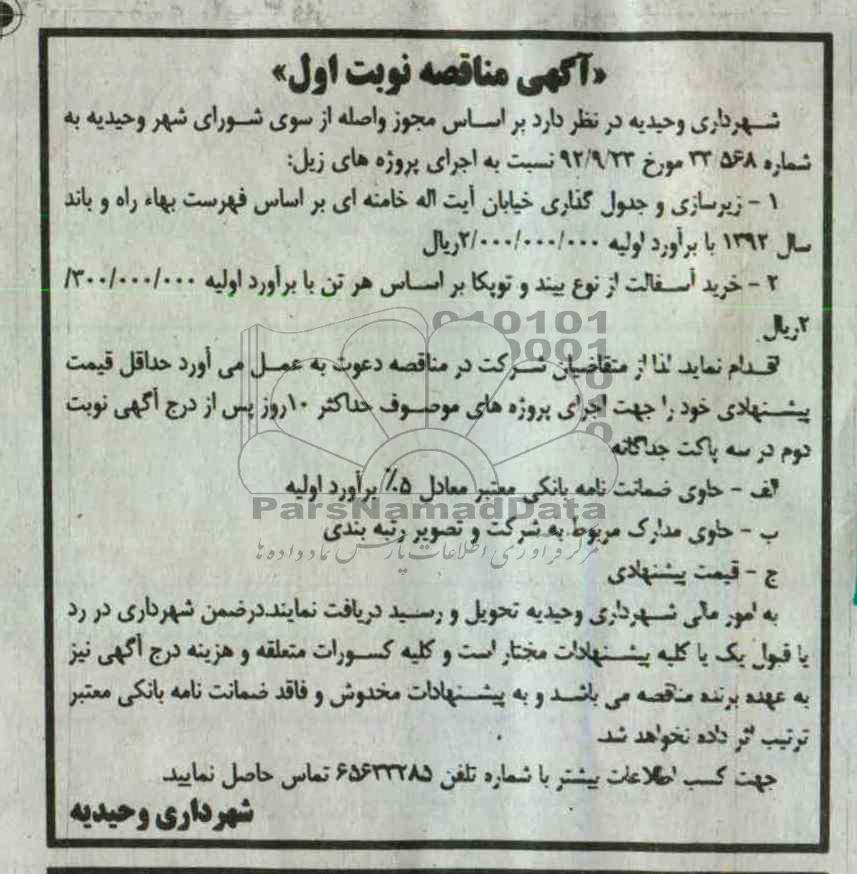 «آگهی مناقصه نوبت اول»
شهرداری وحیدیه در نظر دارد بر اساس مجوز واصله از سوی شورای شهر وحیدیه به
شماره ۳۳۵۶۸ مورخ ۹۲/۹/۲۳ نسبت به اجرای پروژه های زیل:
۱ - زیرسازی و جدول گذاری خیابان آیت اله خامنه ای بر اساس فهرست بهاء راه و باند
سال ۱۳۹۲ با برآورد اولیه ۲/۰۰۰/۰۰۰/۰۰۰ریال
۲ - خرید آسفالت از نوع بیند و توپکا بر اساس هر تن با برآورد اولیه ۳۰۰/۰۰۰/۰۰۰/
۲ریال
اقدام نماید لذا از متقاضیان شرکت در مناقصه دعوت به عمل می آورد حداقل قیمت
پیشنهادی خود را جهت اجرای پروژه های موصوف حداکثر ۱۰روز پس از درج آگهی نوبت
دوم در سه پاکت جداگانه
الف - حاوی ضمانت نامه بانکی معتبر معادل ۵٪ برآورد اولیه
ParsNamadData
ب - حاوی مدارک مربوط به شرکت و تصویر رتبه بندی
مرکز فرآوری اطلاعات پارس نماد داده ها
ج - قیمت پیشنهادی
به امور مالی شهرداری وحیدیه تحویل و رسید دریافت نمایند.درضمن شهرداری در رد
یا قبول یک یا کلیه پیشنهادات مختار است و کلیه کسورات متعلقه و هزینه درج آگهی نیز
به عهده برنده مناقصه می باشد و به پیشنهادات مخدوش و فاقد ضمانت نامه بانکی معتبر
ترتیب اثر داده نخواهد شد.
جهت کسب اطلاعات بیشتر با شماره تلفن ۶۵۶۳۳۲۸۵ تماس حاصل نمایید.
شهرداری وحیدیه